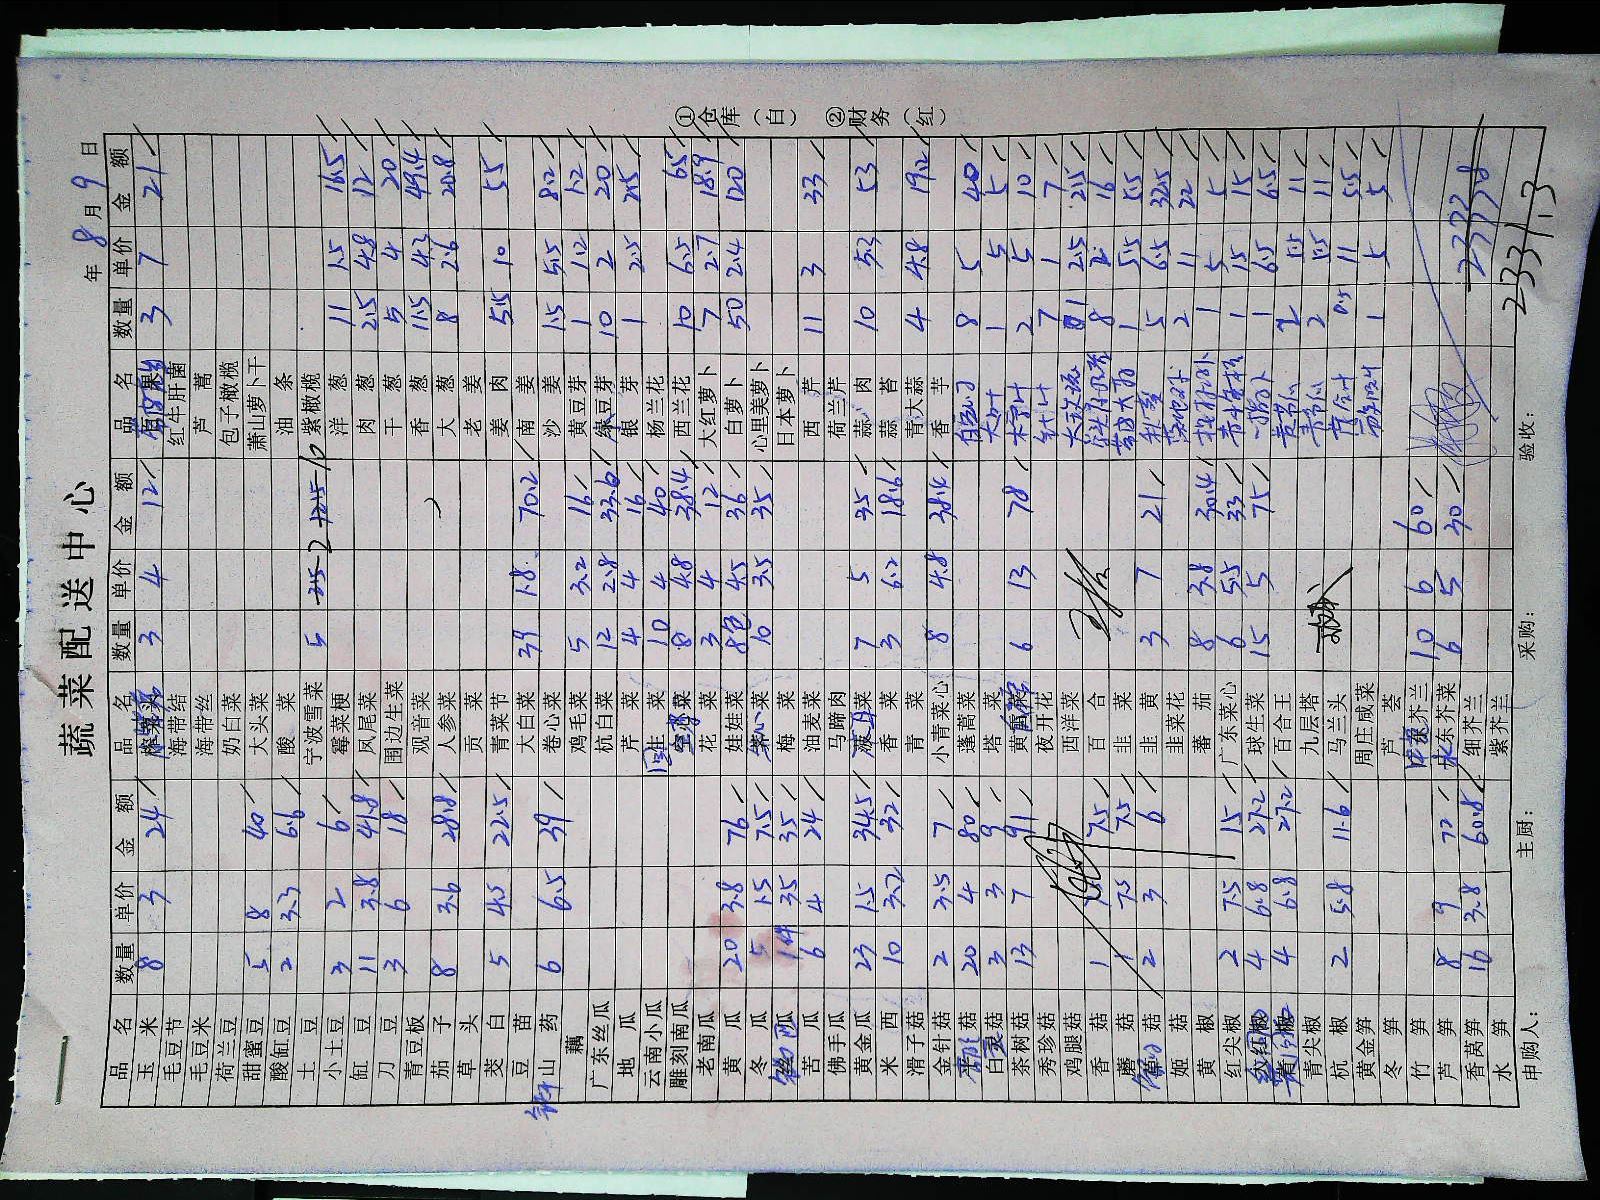 蔬菜配送中心
年 8月 9 日
品名 数量 单价 金额 品名 数量 单价 金额 品名 数量 单价 金额
玉米 8 3 24 3 4 12 3 7 21
毛豆节 海带结 红牛肝菌
毛豆米 海带丝 芦蒿
荷兰豆 奶白菜 包子橄榄
甜蜜豆 5 8 40 大头菜 萧山萝卜干
酸缸豆 2 3.3 6.6 酸菜 油条
土豆 宁波雪菜 5 2 10 紫橄榄
小土豆 3 2 6 霉菜梗 洋葱 11 1.5 16.5
缸豆 11 3.8 41.8 凤尾菜 肉葱 2.5 4.8 12
刀豆 3 6 18 围边生菜 干葱 5 4 20
青豆板 观音菜 香葱 11.5 4.3 49.4
茄子 8 3.6 28.8 人参菜 大葱 8 2.6 20.8
草头 贡菜 老姜
茭白 5 4.5 22.5 青菜节 姜肉 5.5 10 55
豆苗 大白菜 39 1.8 70.2 南姜
铁杆山药 6 6.5 39 卷心菜 沙姜 1.5 5.5 8.2
藕 鸡毛菜 5 3.2 16 黄豆芽 1 1.2 1.2
广东丝瓜 杭白菜 12 2.8 33.6 绿豆芽 10 2 20
地瓜 芹菜 4 4 16 银芽 1 2.5 2.5
云南小瓜 生菜 10 4 40 杨兰花
雕刻南瓜 空心菜 8 4.8 38.4 西兰花 10 6.5 65
老南瓜 花菜 3 4 12 大红萝卜 7 2.7 18.9
黄瓜 20 3.8 76 娃娃菜 8包 4.5 36 白萝卜 50 2.4 120
冬瓜 5 1.5 7.5 菜心菜 10 3.5 35 心里美萝卜
瓜 3.5 35 梅菜 日本萝卜
苦瓜 6 4 24 油麦菜 西芹 11 3 33
佛手瓜 马蹄肉 荷兰芹
黄金瓜 23 1.5 34.5 菜 7 5 35 蒜肉 10 5.3 53
米西 10 3.2 32 香菜 3 6.2 18.6 蒜苔
滑子菇 青菜 青大蒜 4 4.8 19.2
金针菇 2 3.5 7 小青菜心 8 4.8 38.4 香芋
菇 20 4 80 蓬蒿菜 8 5 40
白灵菇 3 3 9 塔菜 大叶 1 5 5
茶树菇 13 7 91 黄 6 13 78 2 5 10
秀珍菇 夜开花 7 1 7
鸡腿菇 西洋菜 1 21.5 21.5
香菇 1 7.5 百合 8 2 16
蘑菇 1 7.5 7.5 韭菜 1 5.5 5.5
菇 2 3 6 韭黄 3 7 21 5 6.5 32.5
姬菇 韭菜花 2 11 22
黄椒 番茄 8 3.8 30.4 1 5 5
红尖椒 2 7.5 15 广东菜心 6 5.5 33 1 15 15
4 6.8 27.2 球生菜 15 5 75 1 6.5 6.5
4 6.8 27.2 百合王 2 5.5 11
青尖椒 九层塔 2 5.5 11
杭椒 2 5.8 11.6 马兰头 0.5 11 5.5
黄金笋 周庄咸菜 1 5 5
冬笋 芦荟
竹笋 芥兰 10 6 60
芦笋 8 9 72 广东芥菜 6 5 30
香莴笋 16 3.8 60.8 细芥兰
水笋 紫芥兰
2331.3
申购人： 主厨： 采购： 验收：
①仓库（白） ②财务（红）